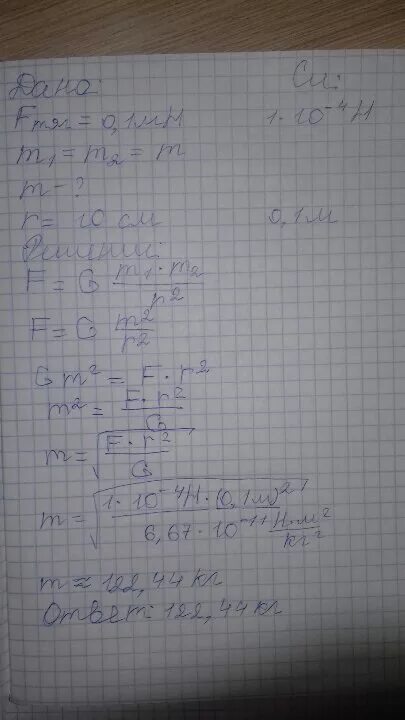 Дано: Си:
Fтяг = 0,1мН 1·10⁻⁴Н
m₁ = m₂ = m
m - ?
r = 10 см 0,1м
Решение:
F = G m₁·m₂/r²
F = G m²/r²
Gm² = F·r²
m² = F·r²/G
m = √(F·r²/G)
m = √(1·10⁻⁴Н·(0,1м)²/6,67·10⁻¹¹ Н·м²/кг²)
m ≈ 122,44 кг
Ответ: 122,44 кг